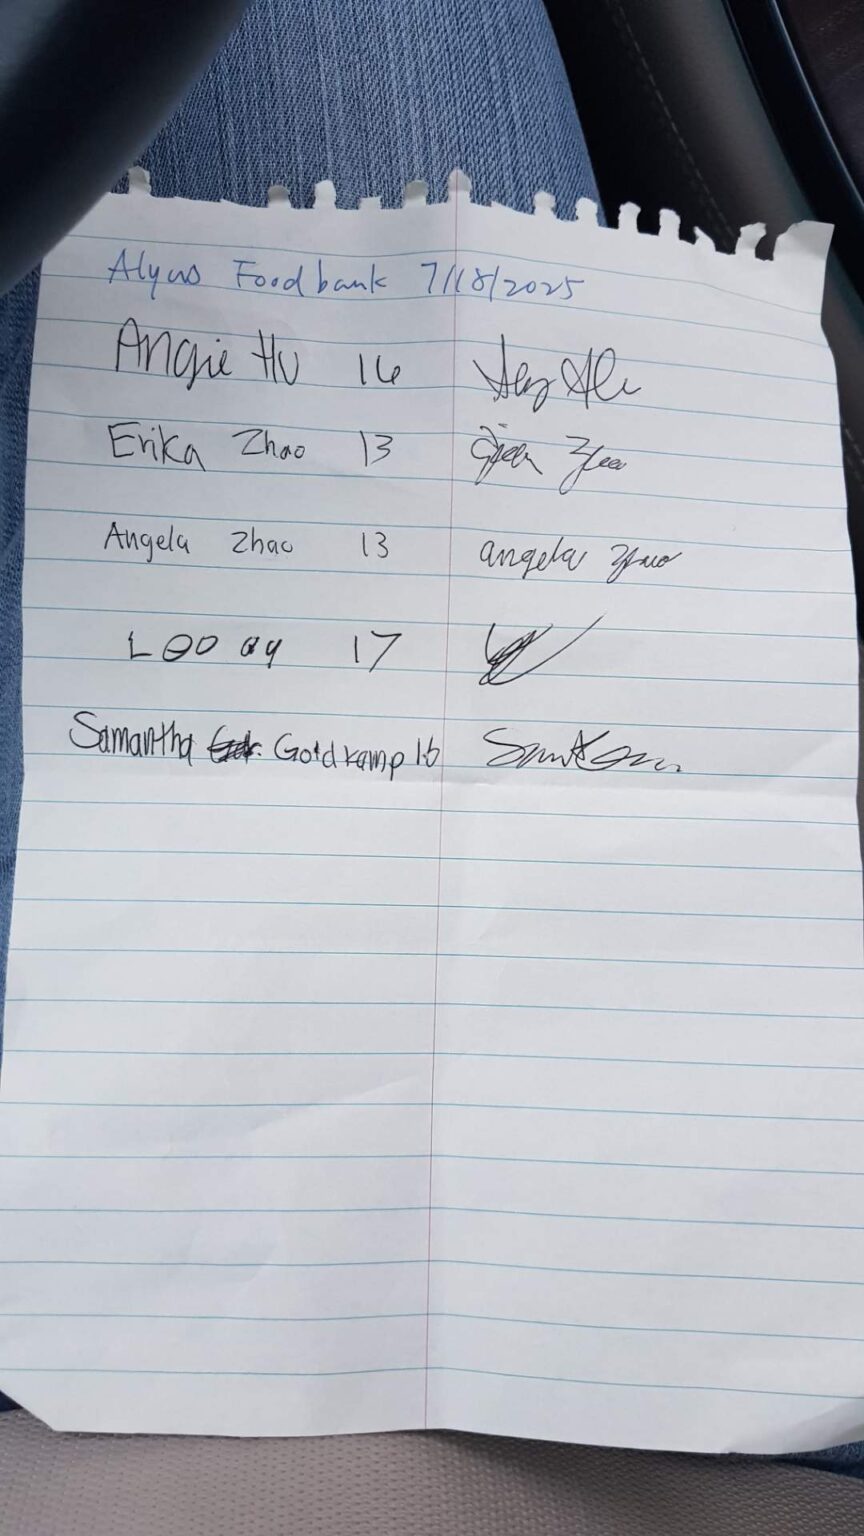 Foodbank 7/18/2025
Angie Hu 16
Erika Zhao 13
Angela Zhao 13 angela zhao
17
Samantha Goldkamp 16